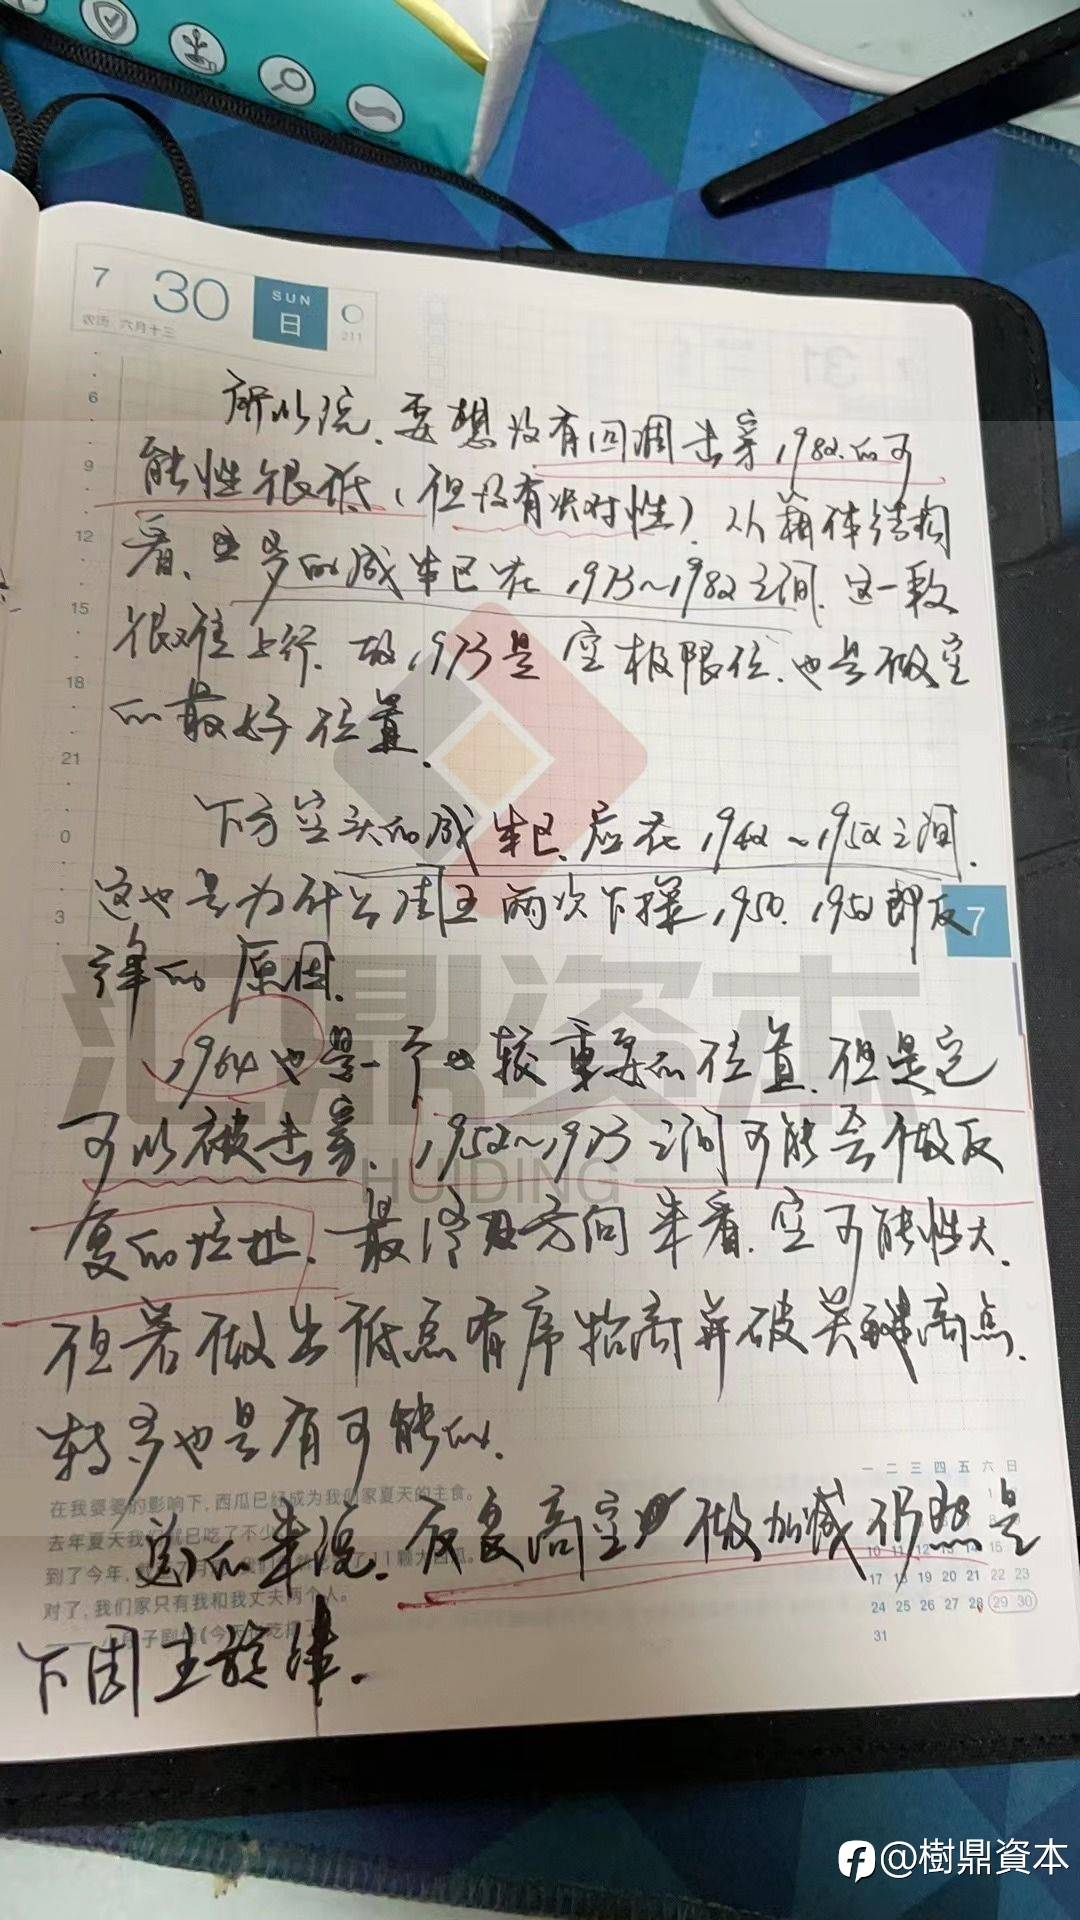 7 30 SUN 日
农历 六月十三 211
所以说，要想没有回调击穿1982的可
能性很低（但没有绝对性）从整体结构
看，多的成本区在1973~1982之间，这一段
很难上行，故1973是空极限位，也是做空
的最好位置，
下方空头的成本区，应在1942~1952之间，
这也是为什么周五两次下探1950、1952即反
弹的原因，
1964也是一个比较重要的位置，但是它
可以被击穿，1952~1973之间可能会做反
复的拉扯，最终方向来看，空可能性大，
但若做出低点有序抬高并破关键高点，
转多也是有可能的，
总的来说，反复高空，做加减仍然是
下周主旋律，
6
9
12
15
18
21
0
3
7
汇鼎资本
HUIDING
在我婆婆的影响下，西瓜已经成为我们家夏天的主食。
去年夏天我们就已吃了不少
到了今年，
对了，我们家只有我和我丈夫两个人。
一 二 三 四 五 六 日
10 11 12 13 14 15 16
17 18 19 20 21 22 23
24 25 26 27 28 29 30
31
@樹鼎資本